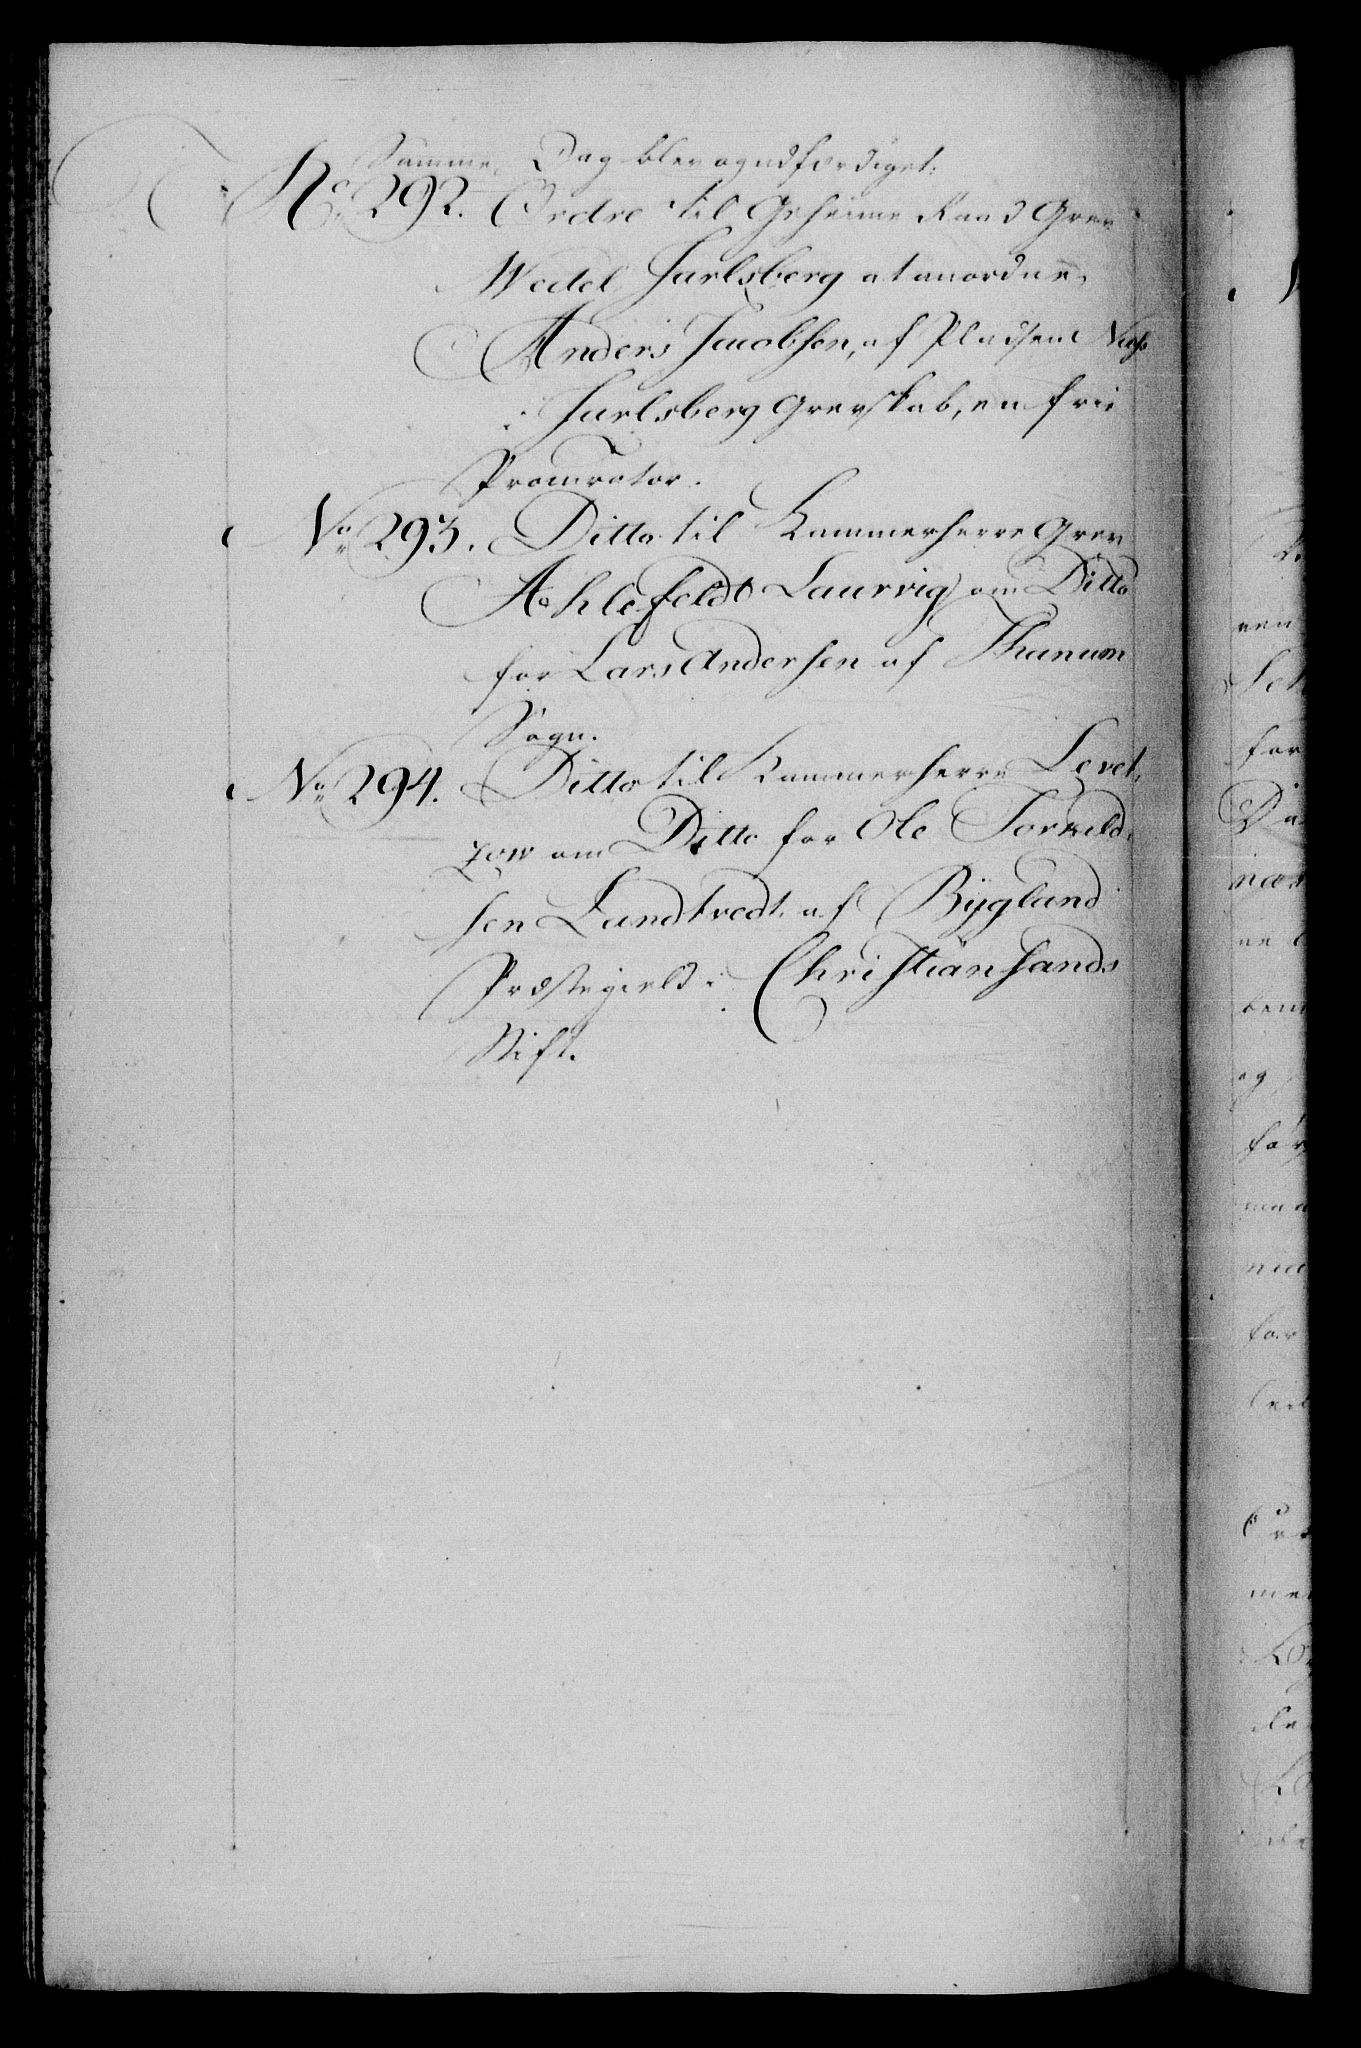 Samme Dag blev og udfærdiget:
No 292. Ordre til Geheime Raad Grev
Wedel Jarlsberg at anordne
Anders Jacobsen, af Pladsen
i Jarlsberg Grevskab, en frie
Procurator.
No 293. Ditto til Kammerherre Grev
Ahlefeldt Laurvig om Ditto
for Lars Andersen af Thanum
Sogn.
No 294. Ditto til Kammerherre Levet,
zow om Ditto for Ole Torkild,
sen Landtvedt af Bÿgland
Præstegield i Christiansands
Stift.